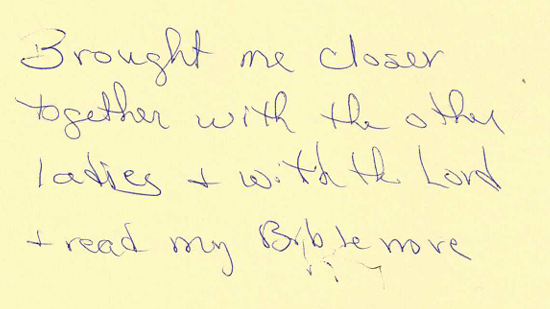 Brought me closer
together with the other
ladies + with the Lord
+ read my Bible more